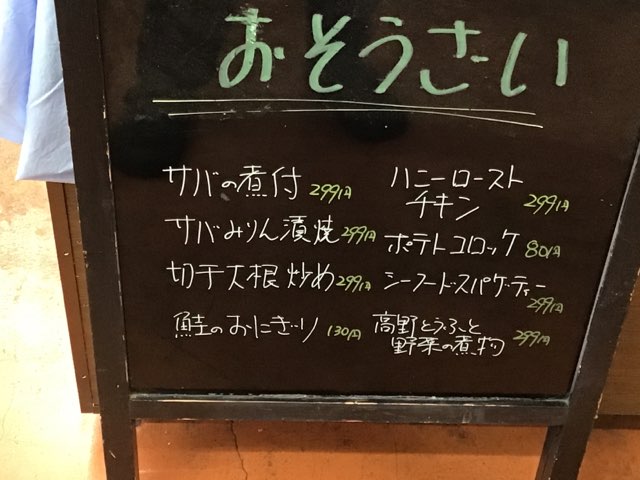 おそうざい
サバの煮付 299円
サバみりん漬焼 299円
切干大根炒め 299円
鮭のおにぎり 130円
ハニーロースト
チキン 299円
ポテトコロッケ 80円
シーフードスパゲッティー
299円
高野とうふと
野菜の煮物 299円